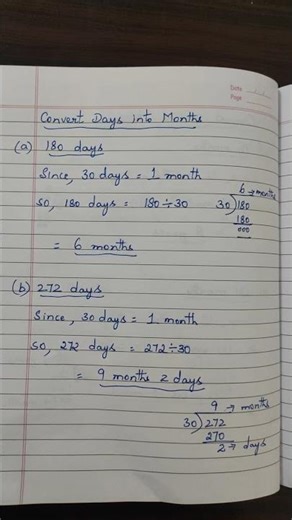 Date
Page
Convert Days into Months
(a) 180 days
Since, 30 days = 1 month
So, 180 days = 180÷30
6 → months
30)180
180
000
= 6 months
(b) 272 days
Since, 30 days = 1 month
So, 272 days = 272÷30
= 9 months 2 days
9 → months
30)272
270
2 → days